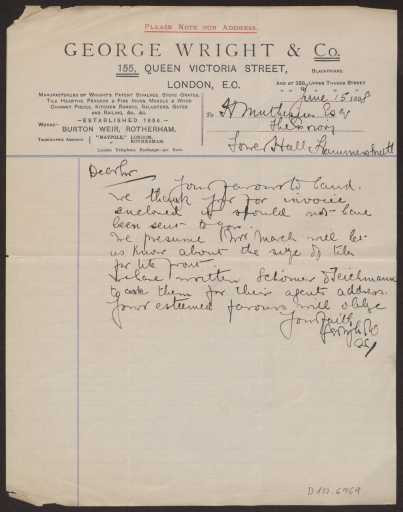 PLEASE NOTE OUR ADDRESS.
GEORGE WRIGHT & Co.
155, QUEEN VICTORIA STREET,
BLACKFRIARS.
LONDON, E.C.
AND AT 205, UPPER THAMES STREET
MANUFACTURERS OF WRIGHT'S PATENT STABLES, STOVE GRATES,
TILE HEARTHS, FENDERS & FIRE IRONS, MARBLE & WOOD
CHIMNEY PIECES, KITCHEN RANGES, RADIATORS, GATES
AND RAILING, &c. &c.
ESTABLISHED 1854.
WORKS:
BURTON WEIR, ROTHERHAM.
TELEGRAPHIC ADDRESSES "MAYPOLE," LONDON.
ROTHERHAM.
London Telephone Exchange
June 15 1898
To H Muthesius Esq
The Priory
Lower Mall Hammersmith
Dear Sir
Your favour to hand.
We thank you for invoice
enclosed it should not have
been sent to you.
We presume Mr March will let
us know about the size of tiles
for his front
I have written Schöner & Teichmann
to ask them for their agents address
Your esteemed favours will oblige
Yours faith
D 102-6969